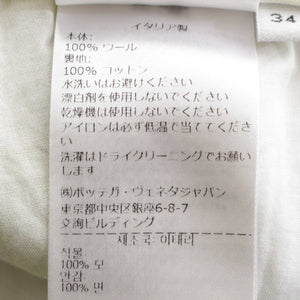 イタリア製
34
本体:
100% ウール
裏地:
100% コットン
水洗いはお避けください
漂白剤を使用しないでください
乾燥機は使用しないでください
アイロンは必ず低温で当ててくださ
い
洗濯はドライクリーニングでお願い
します
㈱ボッテガ・ヴェネタジャパン
東京都中央区銀座6-8-7
交詢ビルディング
제조국:이태리
겉감:
100% 모
안감:
100% 면